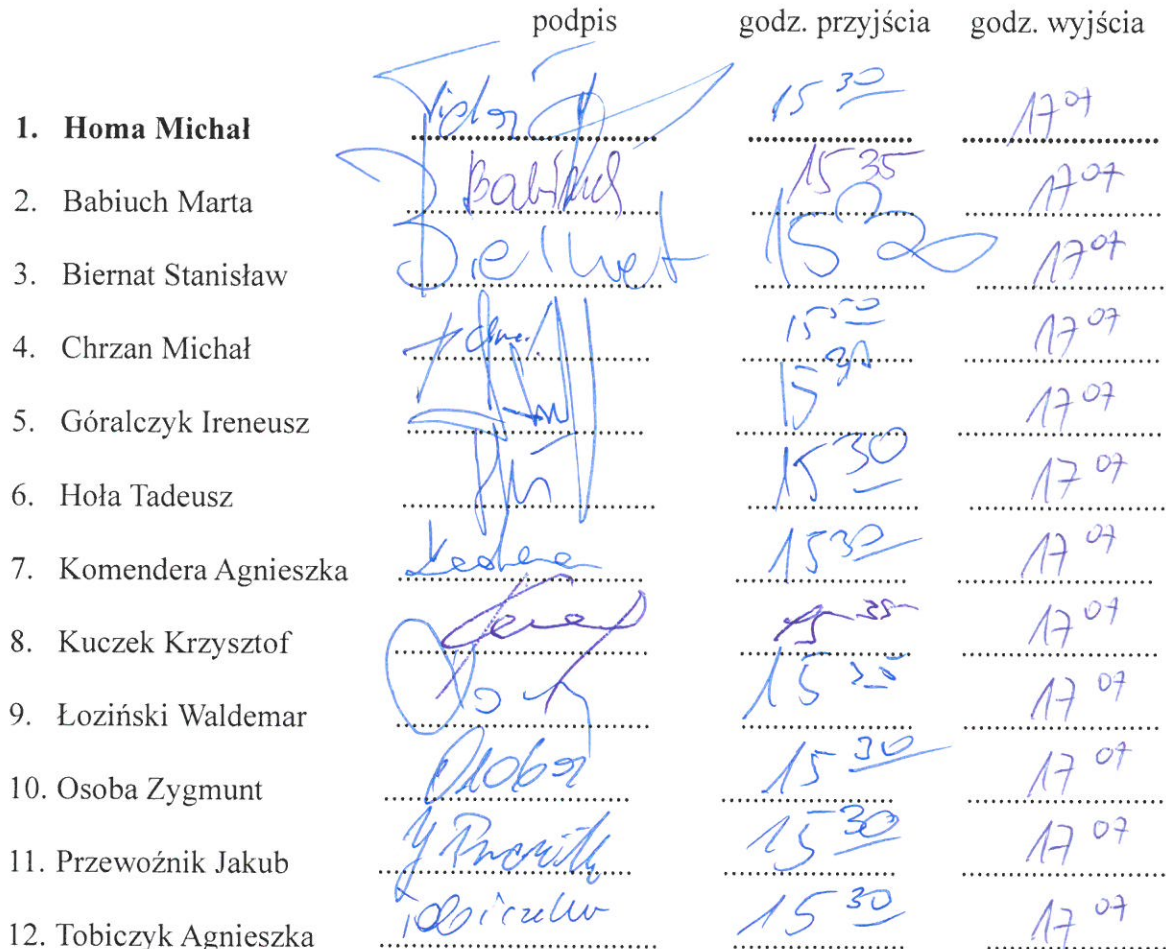 podpis godz. przyjścia godz. wyjścia
1. Homa Michał 15 30 17 07
2. Babiuch Marta Babiuch 15 35 17 07
3. Biernat Stanisław 17 07
4. Chrzan Michał 17 07
5. Góralczyk Ireneusz 17 07
6. Hoła Tadeusz 15 30 17 07
7. Komendera Agnieszka 15 30 17 07
8. Kuczek Krzysztof 15 35 17 07
9. Łoziński Waldemar 17 07
10. Osoba Zygmunt 15 30 17 07
11. Przewoźnik Jakub 15 30 17 07
12. Tobiczyk Agnieszka 15 30 17 07